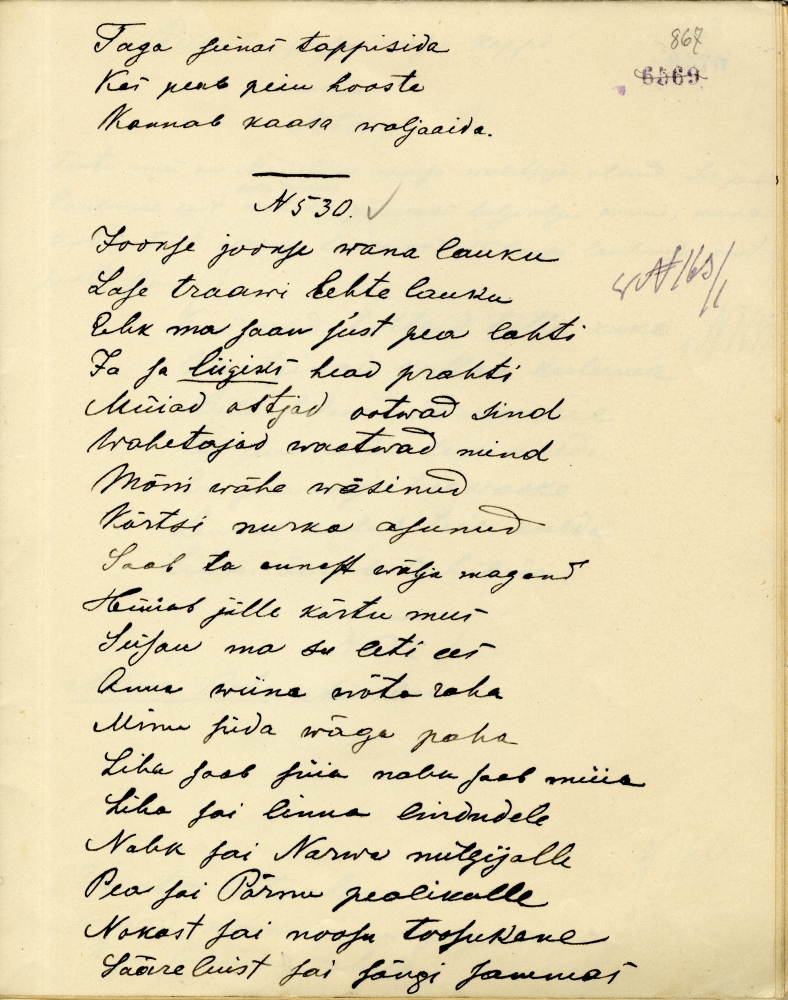 867
6569
Taga seinas tappisida
Kes peab peiu hooste
Kannab kaasa waljaaida.
N 530.
Jookse jookse wana lauku
Lase traawi lehte lauku
Ehk ma saan just pea lahti
Ja sa liigiks head prahti
Müiad ostjad ootwad sind
Wahetajad waatwad mind
Mõni wähe wäsinud
Kõrtsi nurka asunud
Saab ta eunast wälja magand
Hüüab jälle kõrtu mus
Seisan ma su leti ees
Anna wiina wõta raha
Minu süda wäga paha
Liha saab süia nahk saab müia
Liha sai linna lindudele
Nahk sai Narwa nülgijalle
Pea sai Pärnu pealikulle
Nokast sai noosu toosukene
Sääre luust sai sängi sammas